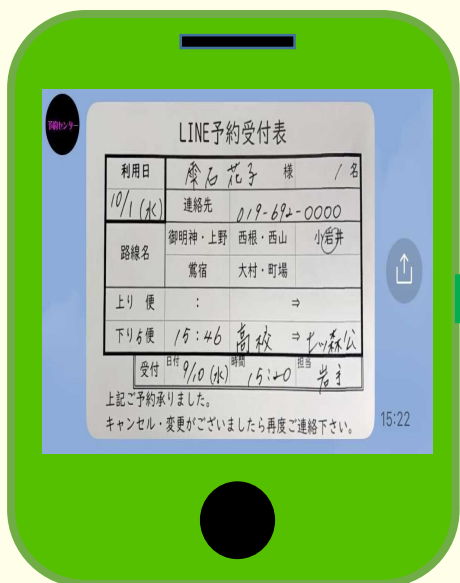 予約センター
LINE予約受付表
利用日 雫石 花子 様 1名
10/1(水) 連絡先 019-692-0000
路線名 御明神・上野 西根・西山 小岩井
鶯宿 大村・町場
上り 便 : ⇒
下り5便 15:46 高校 ⇒ 七ツ森公
受付 日付 9/10(水) 時間 15:20 担当 岩手
上記ご予約承りました。
キャンセル・変更がございましたら再度ご連絡下さい。
15:22